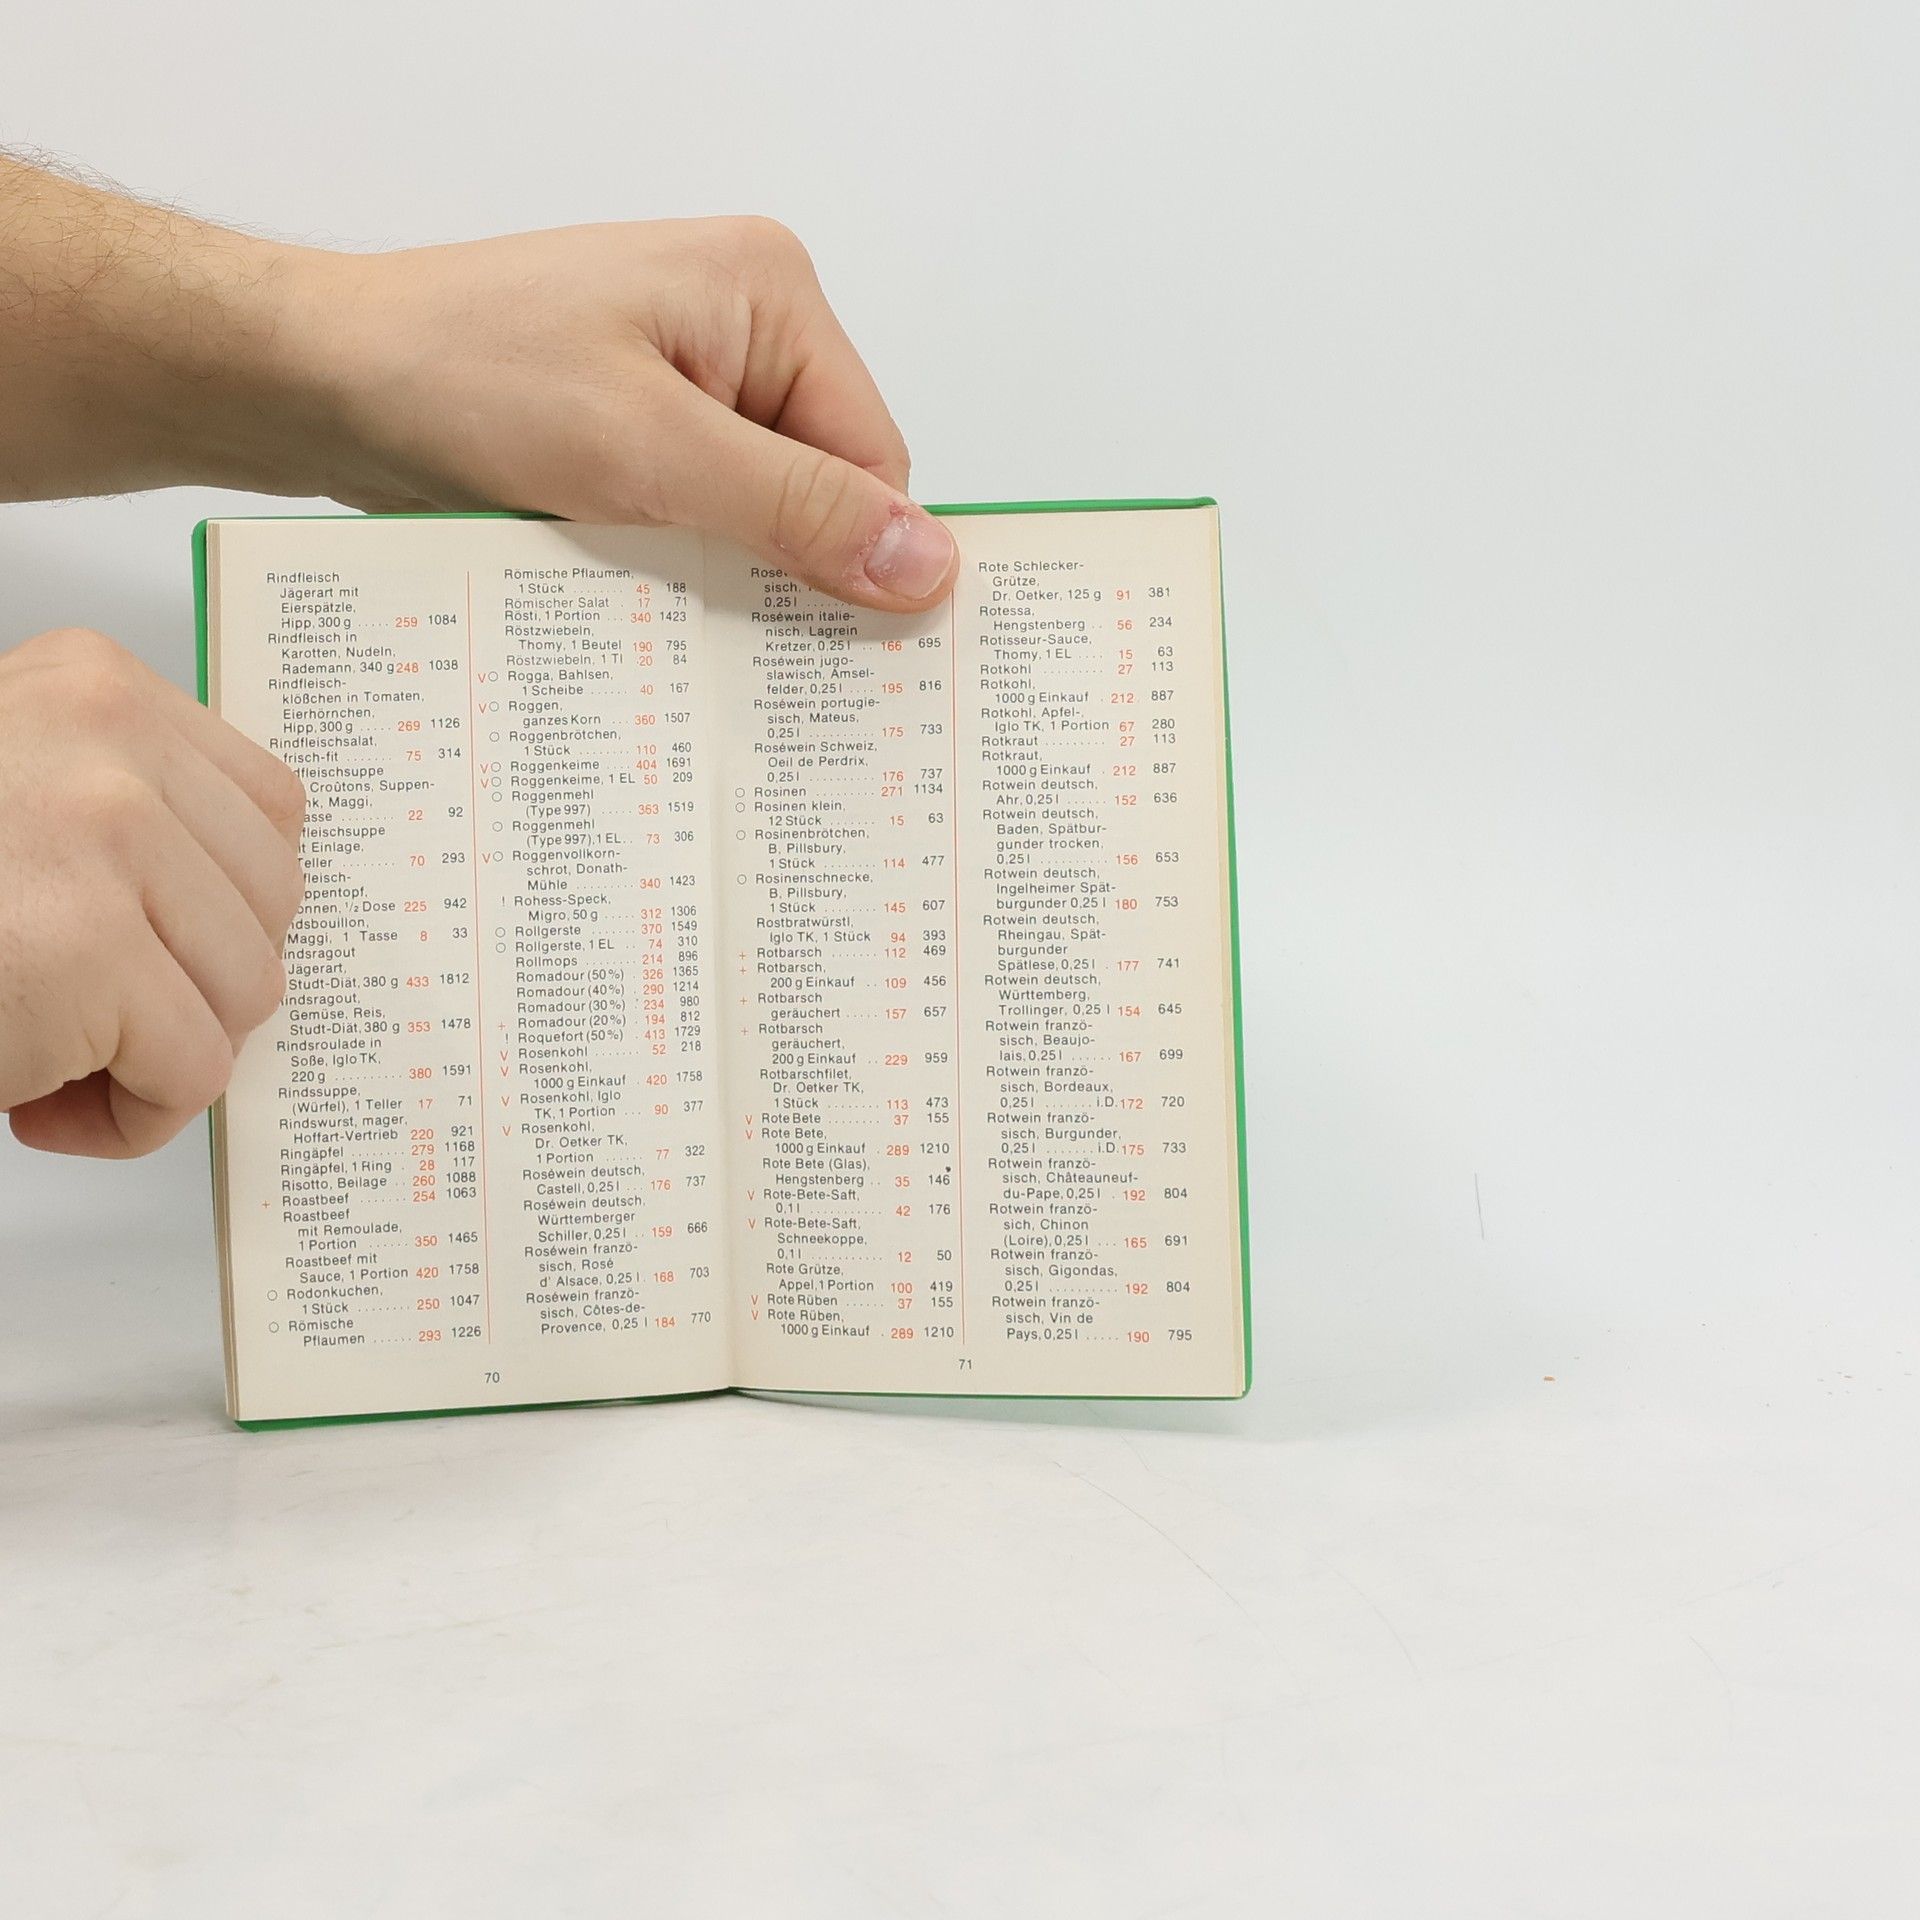 Rindfleisch
Jägerart mit
Eierspätzle,
Hipp, 300 g ..... 259 1084
Rindfleisch in
Karotten, Nudeln,
Rademann, 340 g 248 1038
Rindfleisch-
klößchen in Tomaten,
Eierhörnchen,
Hipp, 300 g ..... 269 1126
Rindfleischsalat,
frisch-fit ....... 75 314
dfleischsuppe
Croûtons, Suppen-
nk, Maggi,
asse ........ 22 92
fleischsuppe
t Einlage,
Teller ........ 70 293
fleisch-
ppentopf,
onnen, ½ Dose 225 942
ndsbouillon,
Maggi, 1 Tasse 8 33
indsragout
Jägerart,
Studt-Diät, 380 g 433 1812
indsragout,
Gemüse, Reis,
Studt-Diät, 380 g 353 1478
Rindsroulade in
Soße, Iglo TK,
220 g .......... 380 1591
Rindssuppe,
(Würfel), 1 Teller 17 71
Rindswurst, mager,
Hoffart-Vertrieb 220 921
Ringäpfel ........ 279 1168
Ringäpfel, 1 Ring . 28 117
Risotto, Beilage .. 260 1088
+ Roastbeef ....... 254 1063
Roastbeef
mit Remoulade,
1 Portion ...... 350 1465
Roastbeef mit
Sauce, 1 Portion 420 1758
○ Rodonkuchen,
1 Stück ........ 250 1047
○ Römische
Pflaumen ...... 293 1226
Römische Pflaumen,
1 Stück ........ 45 188
Römischer Salat . 17 71
Rösti, 1 Portion ... 340 1423
Röstzwiebeln,
Thomy, 1 Beutel 190 795
Röstzwiebeln, 1 Tl 20 84
V○ Rogga, Bahlsen,
1 Scheibe ...... 40 167
V○ Roggen,
ganzes Korn ... 360 1507
○ Roggenbrötchen,
1 Stück ........ 110 460
V○ Roggenkeime .... 404 1691
V○ Roggenkeime, 1 EL 50 209
○ Roggenmehl
(Type 997) ..... 363 1519
○ Roggenmehl
(Type 997), 1 EL.. 73 306
V○ Roggenvollkorn-
schrot, Donath-
Mühle ......... 340 1423
! Rohess-Speck,
Migro, 50 g ..... 312 1306
○ Rollgerste ....... 370 1549
○ Rollgerste, 1 EL .. 74 310
Rollmops ........ 214 896
Romadour (50%) . 326 1365
Romadour (40%) . 290 1214
Romadour (30%) . 234 980
+ Romadour (20%) . 194 812
! Roquefort (50%) . 413 1729
V Rosenkohl ....... 52 218
V Rosenkohl,
1000 g Einkauf . 420 1758
V Rosenkohl, Iglo
TK, 1 Portion ... 90 377
V Rosenkohl,
Dr. Oetker TK,
1 Portion ...... 77 322
Roséwein deutsch,
Castell, 0,25 l ... 176 737
Roséwein deutsch,
Württemberger
Schiller, 0,25 l .. 159 666
Roséwein franzö-
sisch, Rosé
d' Alsace, 0,25 l . 168 703
Roséwein franzö-
sisch, Côtes-de-
Provence, 0,25 l 184 770
70
Rosé
sisch,
0,25 l ......
Roséwein italie-
nisch, Lagrein
Kretzer, 0,25 l .. 166 695
Roséwein jugo-
slawisch, Amsel-
felder, 0,25 l .... 195 816
Roséwein portugie-
sisch, Mateus,
0,25 l .......... 175 733
Roséwein Schweiz,
Oeil de Perdrix,
0,25 l .......... 176 737
○ Rosinen ......... 271 1134
○ Rosinen klein,
12 Stück ....... 15 63
○ Rosinenbrötchen,
B, Pillsbury,
1 Stück ........ 114 477
○ Rosinenschnecke,
B, Pillsbury,
1 Stück ........ 145 607
Rostbratwürstl,
Iglo TK, 1 Stück 94 393
+ Rotbarsch ....... 112 469
+ Rotbarsch,
200 g Einkauf .. 109 456
+ Rotbarsch
geräuchert ..... 157 657
+ Rotbarsch
geräuchert,
200 g Einkauf .. 229 959
Rotbarschfilet,
Dr. Oetker TK,
1 Stück ........ 113 473
V Rote Bete ........ 37 155
V Rote Bete,
1000 g Einkauf . 289 1210
Rote Bete (Glas),
Hengstenberg .. 35 146
V Rote-Bete-Saft,
0,1 l ........... 42 176
V Rote-Bete-Saft,
Schneekoppe,
0,1 l ........... 12 50
Rote Grütze,
Appel, 1 Portion 100 419
V Rote Rüben ...... 37 155
V Rote Rüben,
1000 g Einkauf . 289 1210
Rote Schlecker-
Grütze,
Dr. Oetker, 125 g 91 381
Rotessa,
Hengstenberg .. 56 234
Rotisseur-Sauce,
Thomy, 1 EL .... 15 63
Rotkohl ......... 27 113
Rotkohl,
1000 g Einkauf . 212 887
Rotkohl, Apfel-,
Iglo TK, 1 Portion 67 280
Rotkraut ......... 27 113
Rotkraut,
1000 g Einkauf . 212 887
Rotwein deutsch,
Ahr, 0,25 l ...... 152 636
Rotwein deutsch,
Baden, Spätbur-
gunder trocken,
0,25 l .......... 156 653
Rotwein deutsch,
Ingelheimer Spät-
burgunder 0,25 l 180 753
Rotwein deutsch,
Rheingau, Spät-
burgunder
Spätlese, 0,25 l . 177 741
Rotwein deutsch,
Württemberg,
Trollinger, 0,25 l 154 645
Rotwein franzö-
sisch, Beaujo-
lais, 0,25 l ...... 167 699
Rotwein franzö-
sisch, Bordeaux,
0,25 l ....... i.D. 172 720
Rotwein franzö-
sisch, Burgunder,
0,25 l ....... i.D. 175 733
Rotwein franzö-
sisch, Châteauneuf-
du-Pape, 0,25 l . 192 804
Rotwein franzö-
sich, Chinon
(Loire), 0,25 l ... 165 691
Rotwein franzö-
sisch, Gigondas,
0,25 l .......... 192 804
Rotwein franzö-
sisch, Vin de
Pays, 0,25 l ..... 190 795
71